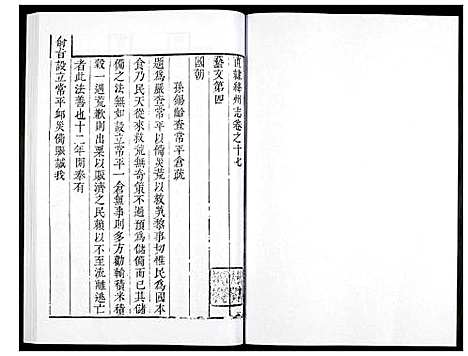 直隸絳州志卷之十七
藝文第四
國朝
孫錫齡查常平倉疏
題為嚴查常平以備災荒以救黎事切惟民為國本
食乃民天從來救荒無奇策不過預為儲備而已其
備之法無如設立常平一倉無事則多方勸輸積米積
穀一遇荒歉則出粟以賑濟之民賴以不至流離逃亡
者此法善也十二年間奉有
俞旨設立常平卹災備賑誠我